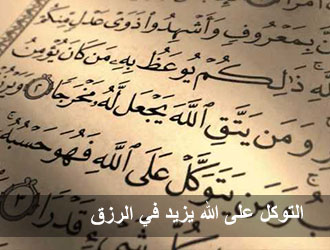 بِمَعْرُوفٍ وَأَشْهِدُوا۟ ذَوَىْ عَدْلٍ مِّنكُمْ
ذَٰلِكُمْ يُوعَظُ بِهِۦ مَن كَانَ يُؤْمِنُ
وَمَن يَتَّقِ ٱللَّهَ يَجْعَل لَّهُۥ مَخْرَجًا ٢
وَمَن يَتَوَكَّلْ عَلَى ٱللَّهِ فَهُوَ حَسْبُهُۥٓ
قَدْرًا ٣
التوكل على الله يزيد في الرزق